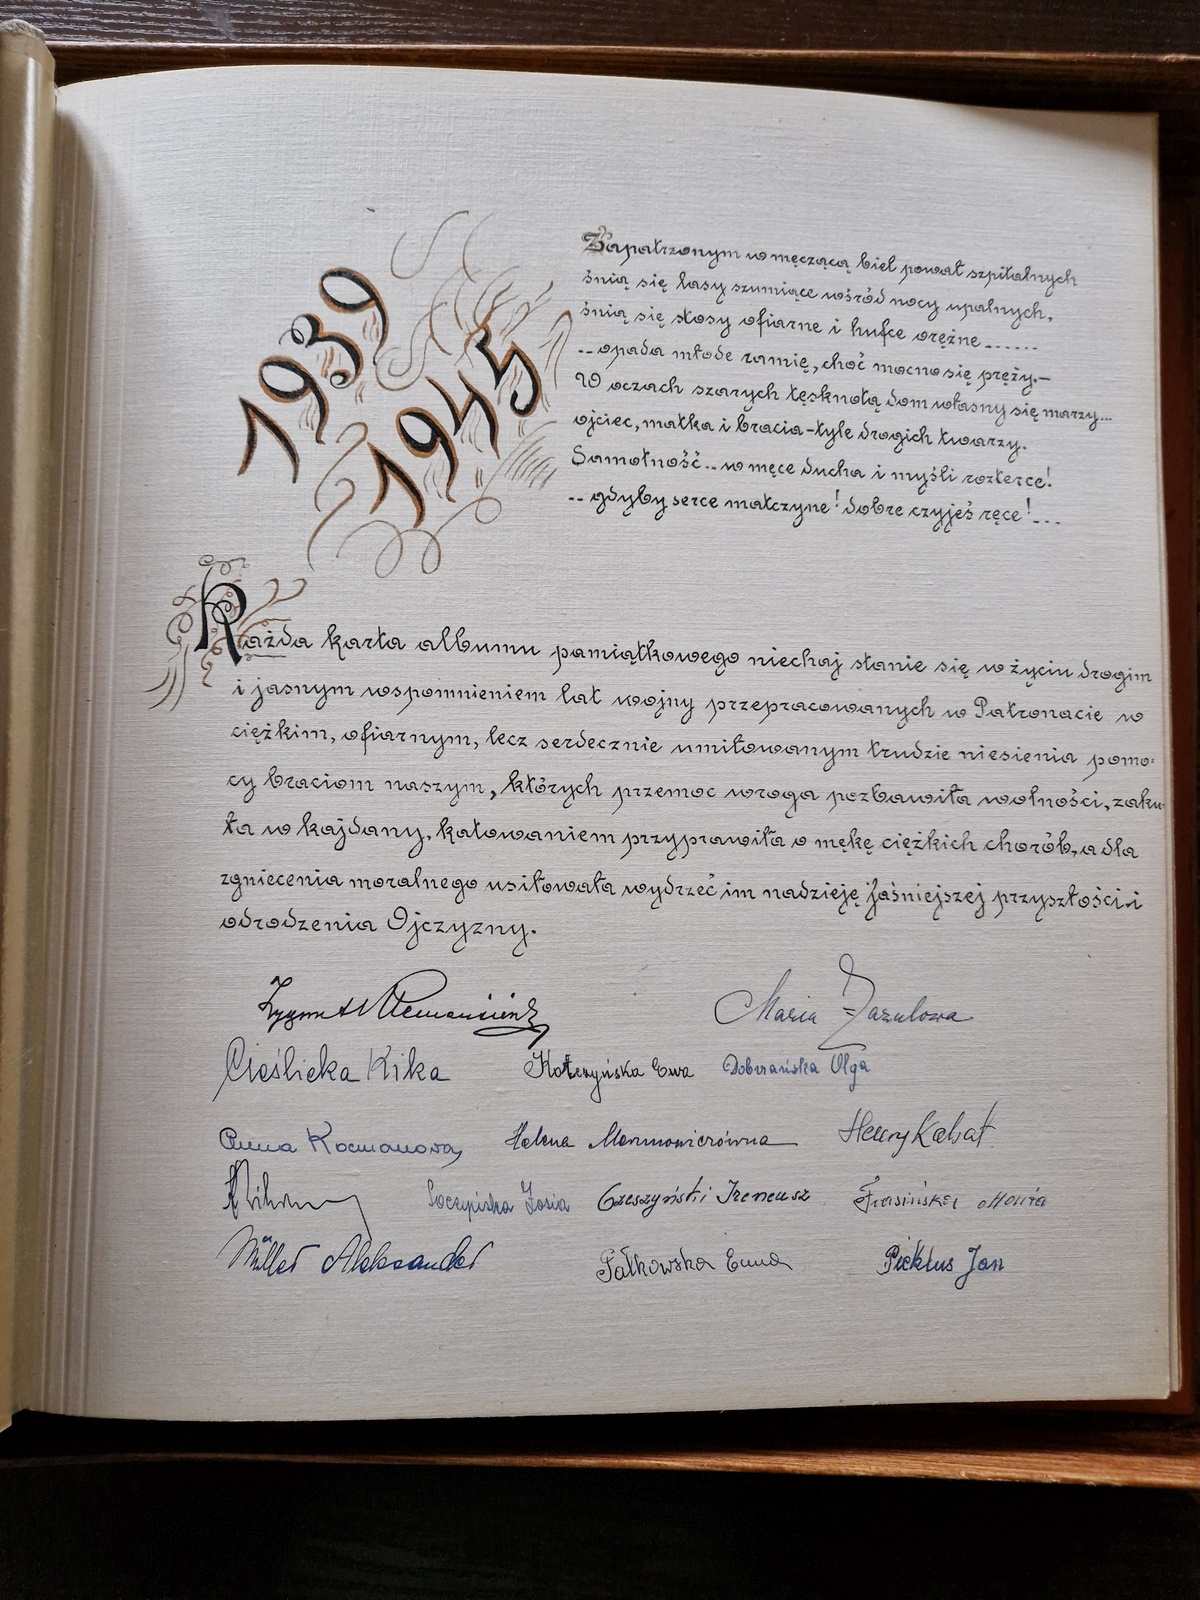 1939
1945
Zapatrzonym w męczącą biel pował szpitalnych
śnią się lasy szumiące wśród nocy upalnych,
śnią się stosy ofiarne i hufce orężne.......
.. opada młode ramię, choć mocno się pręży.-
W oczach szarych tęsknotą dom własny się marzy...
ojciec, matka i bracia - tyle drogich twarzy.
Samotność... w męce ducha i myśli rozterce!
.. gdyby serce matczyne! dobre czyjeś ręce!...
Każda karta albumu pamiątkowego niechaj stanie się w życiu drogim
i jasnym wspomnieniem lat wojny przepracowanych w Patronacie w
ciężkim, ofiarnym, lecz serdecznie umiłowanym trudzie niesienia pomo-
cy braciom naszym, których przemoc wroga pozbawiła wolności, zaku-
ta w kajdany, katowaniem przyprawiła o mękę ciężkich chorób, a dla
zgniecenia moralnego usiłowała wydrzeć im nadzieję jaśniejszej przyszłości i
odrodzenia Ojczyzny.
Zygmunt Klemensiewicz Maria Zazulowa
Cieślicka Kika Ewa Dobrzańska Olga
Anna Kocmanowa Helena Henryk Kabat
Zosia Cieszyński Ireneusz Frasińska Maria
Müller Aleksander Pałkowska Piektus Jan